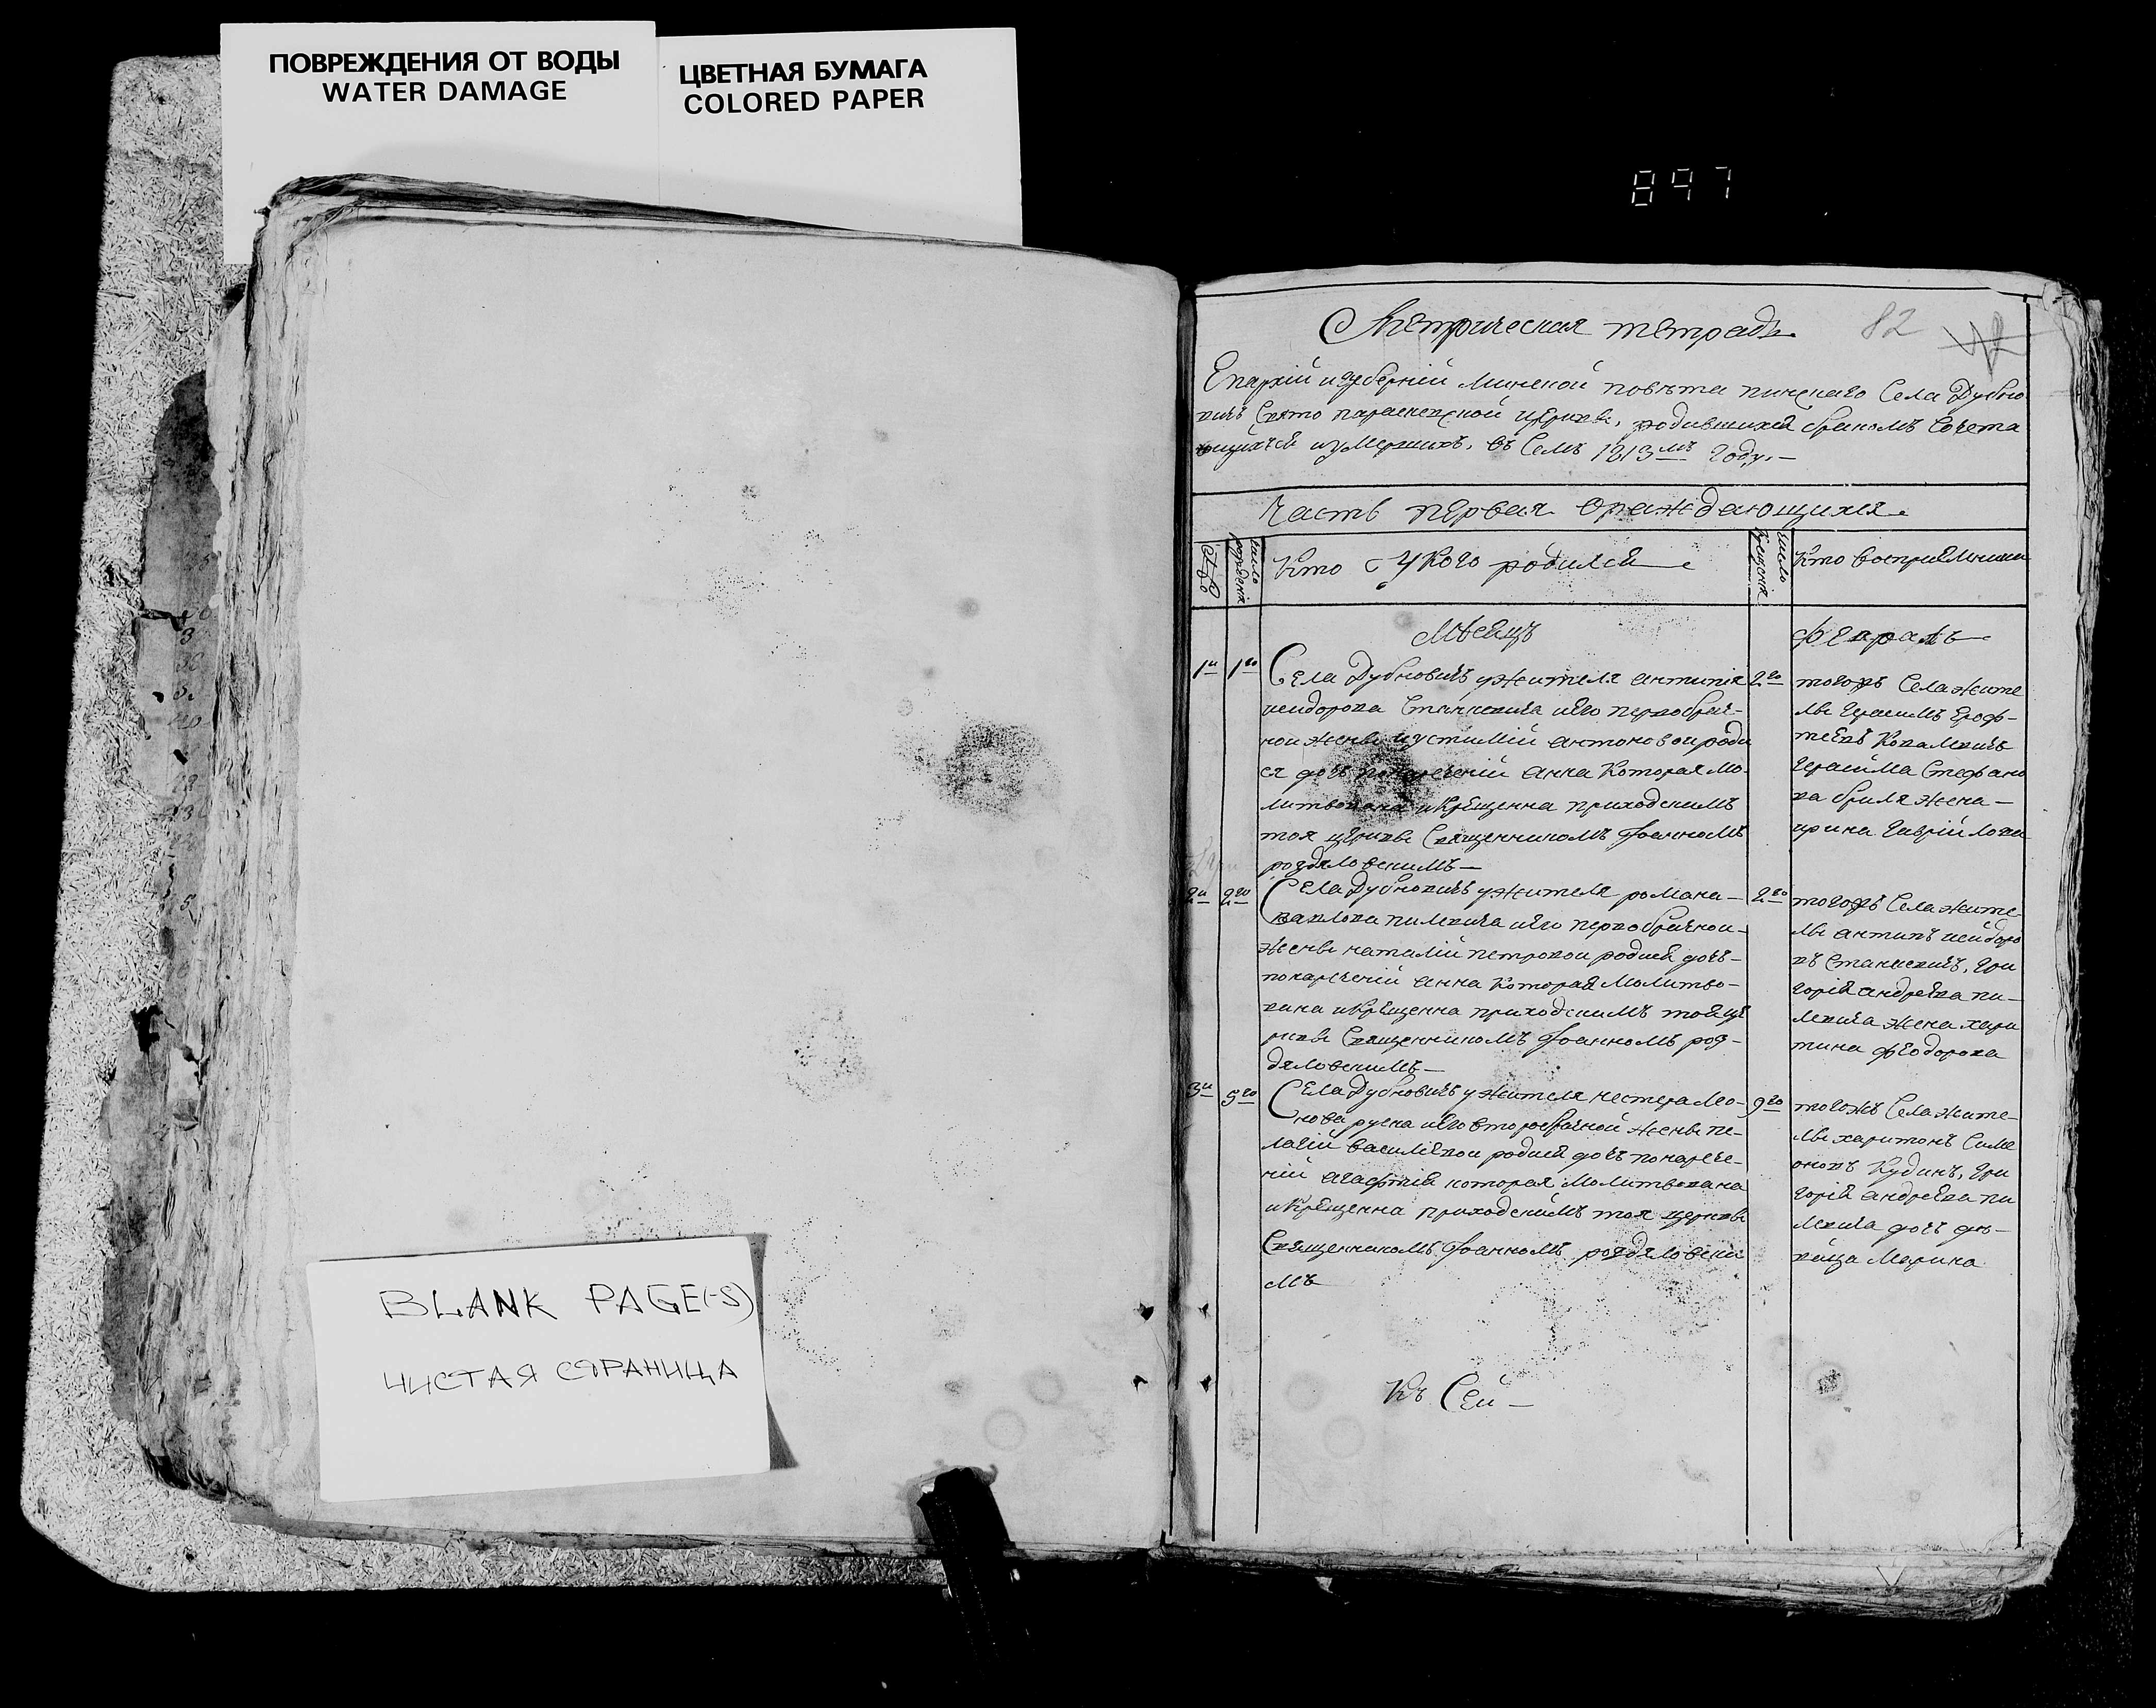 ПОВРЕЖДЕНИЯ ОТ ВОДЫ
WATER DAMAGE
ЦВЕТНАЯ БУМАГА
COLORED PAPER
897
Метрическая тетрадь
82
Епархіи и губерніи Минской повѣта пинскаго Села Дубно
вичъ Свято параскевской церкви, родившихся бракомъ Сочета
ющихся и умершихъ, въ Семъ 1813мъ Году.—
Часть первая о раждающихся.
число рожденія
Кто у Кого родился
число крещенія
Кто восприемники
Мѣсяцъ
Февраль
1й 1го Села Дубновичъ у жителя антипія
исидорова Станкевича и его первобрач-
ной жены иустиміи антоновой роди
ся дочь нареченій анна Которая мо-
литвована и Крещенна приходскимъ
тоя церкви Священникомъ Іоанномъ
роздяловскимъ—
2го тогожъ Села жите
ли Герасимъ Ероф-
теевъ Ковалевичъ
Герасима Стефано
ва бриля жена—
ирина Гавріилова
2й 2го Села Дубновичъ у жителя романа—
павлова пилевича и его первобрачной—
жены наталіи петровой родися дочь—
понареченій анна Которая молитво-
вана и Крещенна приходскимъ тоя це
ркви Священникомъ Іоанномъ роз-
дяловскимъ—
2го тогожъ Села жите-
ли антипъ исидоро
въ Станкевичъ, Гри
горія андреева пи-
левича жена хари
тина феодорова
3й 5го Села Дубновичъ у жителя нестера Мо-
нова русна и его второбрачной жены пе-
лагіи василіевой родися дочь понарече-
ній агафія которая молитвована
и Крещенна приходскимъ тоя церкви
Священникомъ Іоанномъ роздяловски
мъ
9го тогожъ Села жите-
ли харитонъ Симе
оновъ Кудинъ, Гри
горія андреева пи
левича дочь дѣ-
вица Марина
Къ Сей—
BLANK PAGE(-S)
ЧИСТАЯ СТРАНИЦА